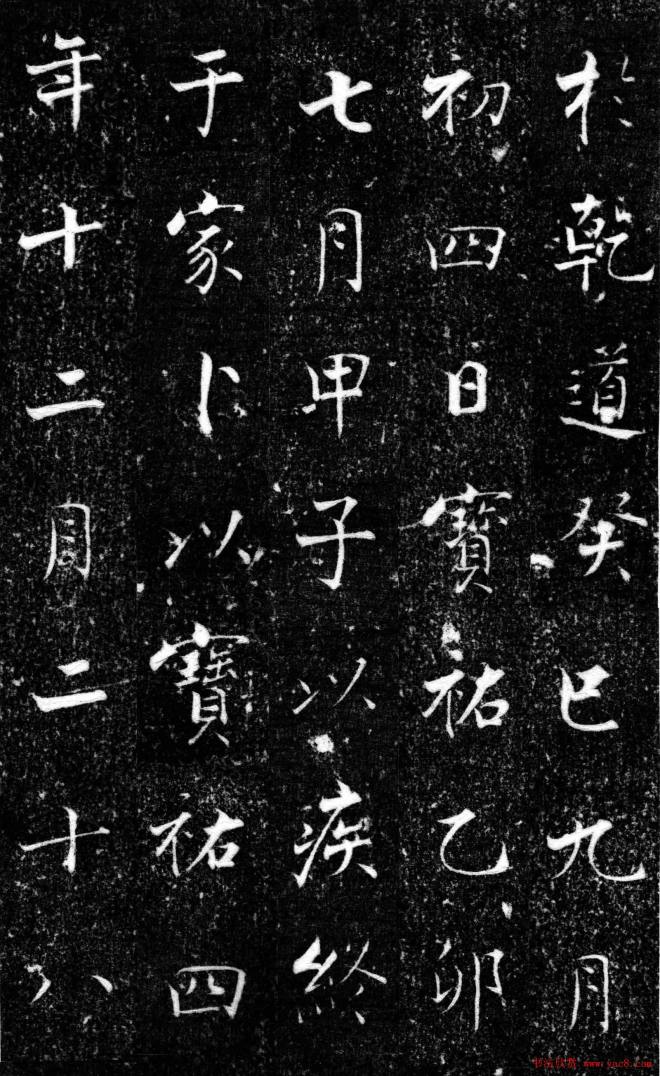 於乾道癸巳九月
初四日寶祐乙卯
七月甲子以疾終
于家卜以寶祐四
年十二月二十八
书法欣赏 www.yac8.com